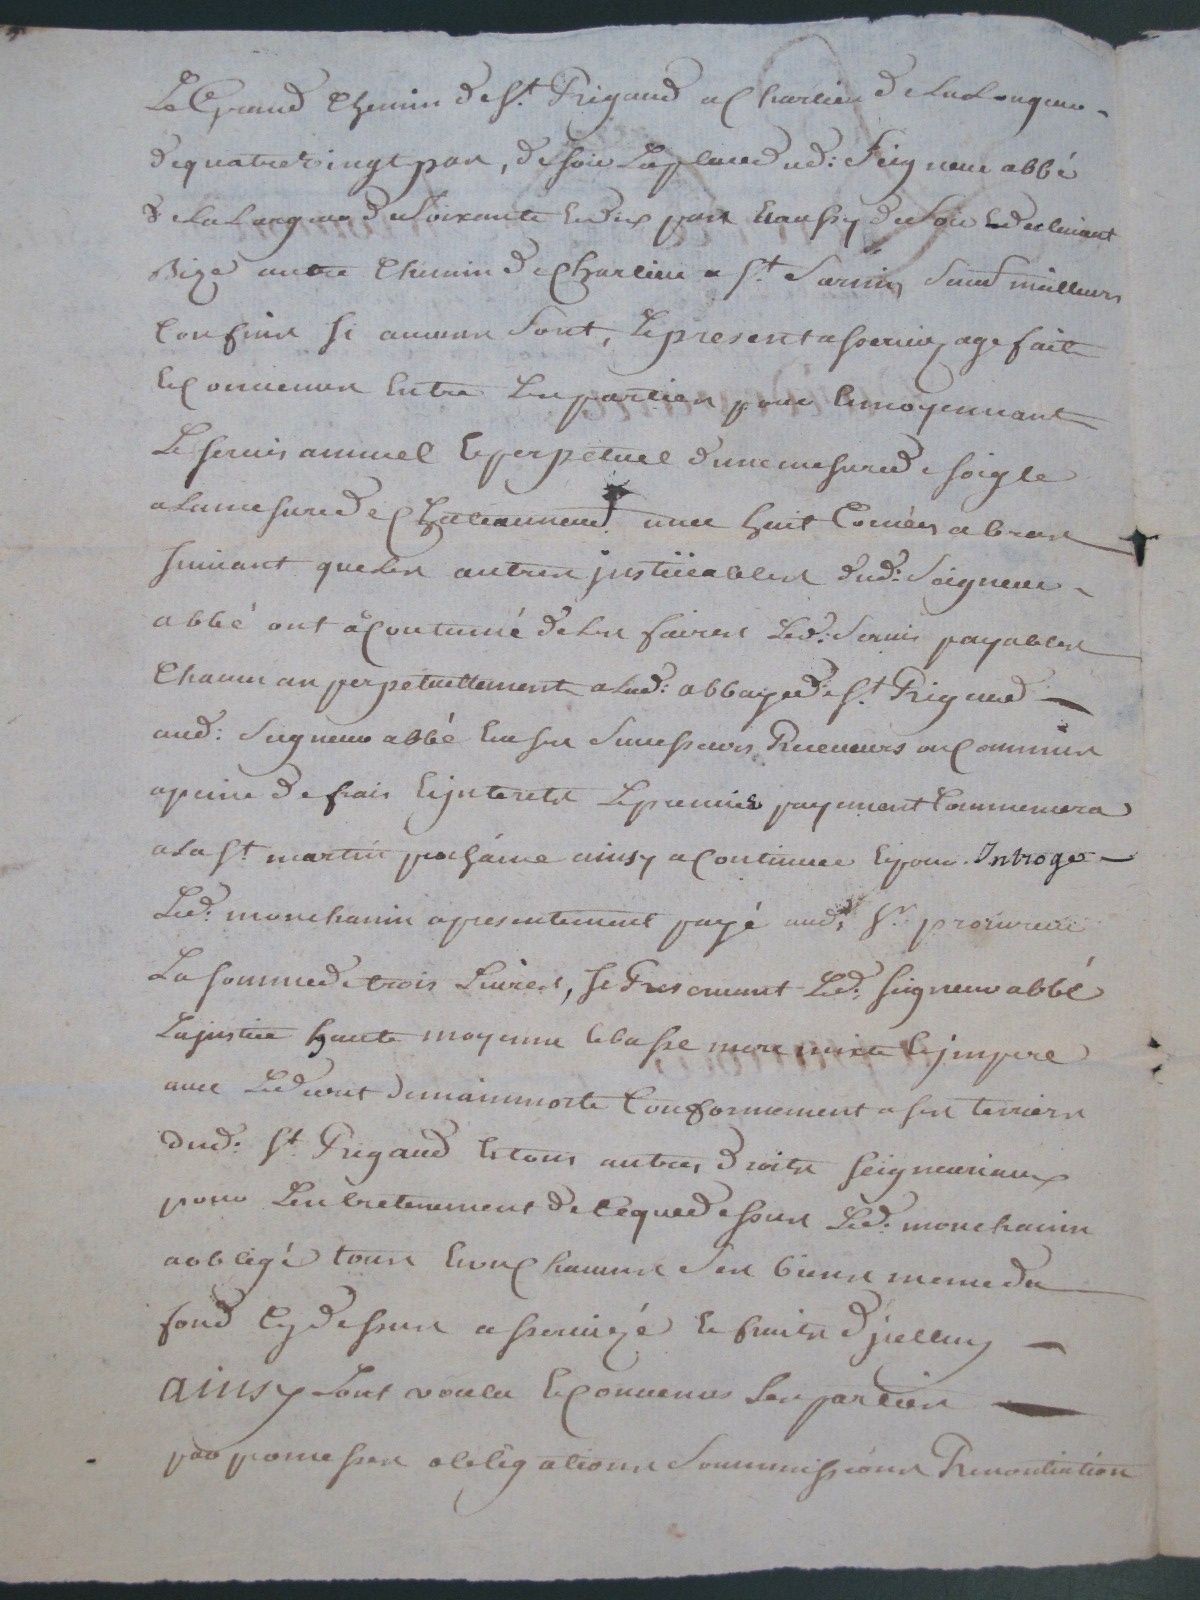 Le Grand Chemin de St. Rigaud a Charlieu de La Longueur
de quatre vingt pas, de soir La place dud: Seigneur abbé
de La Longueur de soixante et dix pas et aussy de soir et declinant
Bize autre Chemin de Charlieu a St. Sernin sauf meilleurs
Confins si aucuns sont, Le present asservizage fait
et Convenus entre Les parties pour et moyennant
Le servis annuel et perpetuel d'une mesure de soigle
a La mesure de Chateauneuf avec huit Corvées a bras
suivant que Les autres justiciables dud: Seigneur
abbé ont acoutumé de Les faires Led: Servis payables
Chacun an perpetuellement a Lad: abbaye de St. Rigaud
aud: Seigneur abbé et a ses Successeurs Receveurs ou Commis
a peine de frais et jnterets Le premier payement Commencera
a La St. martin prochaine ainsy a Continuer et pour Introge
Led: monchanin a presentement payé aud: Sr. procureur
La somme de trois Livres, se Reservant Led: seigneur abbé
La justice haute moyenne et basse mere mixte et jmpere
avec Led droit de mainmorte Conformement a ses terriers
dud: St. Rigaud et tous autres droits seigneuriaux
pour L'entretenement de Ce que dessus Led: monchanin
a obligé tous et un Chacuns ses biens meme du
fond Cy dessus asservizé et fruits d'jcelluy
ainsy L'ont voulu et Convenus Les parties
par promesses obligations Soummissions Renontiation